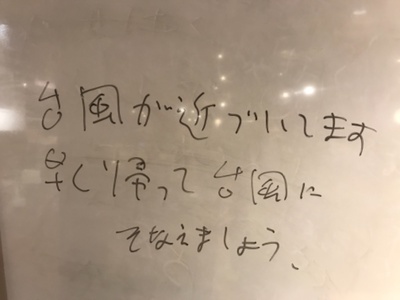 台風が近づいてます
早く帰って台風に
そなえましょう、